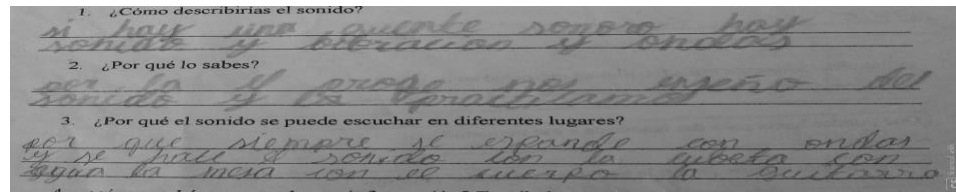 1. ¿Cómo describirías el sonido?
si hay una fuente sonoro hay
sonido y vibracion y ondas
2. ¿Por qué lo sabes?
por el profe nos enseño del
sonido y lo practicamos
3. ¿Por qué el sonido se puede escuchar en diferentes lugares?
por que siempre se expande con ondas
y se hace el sonido con la cubeta con
agua la mesa con el cuerpo la guitarra